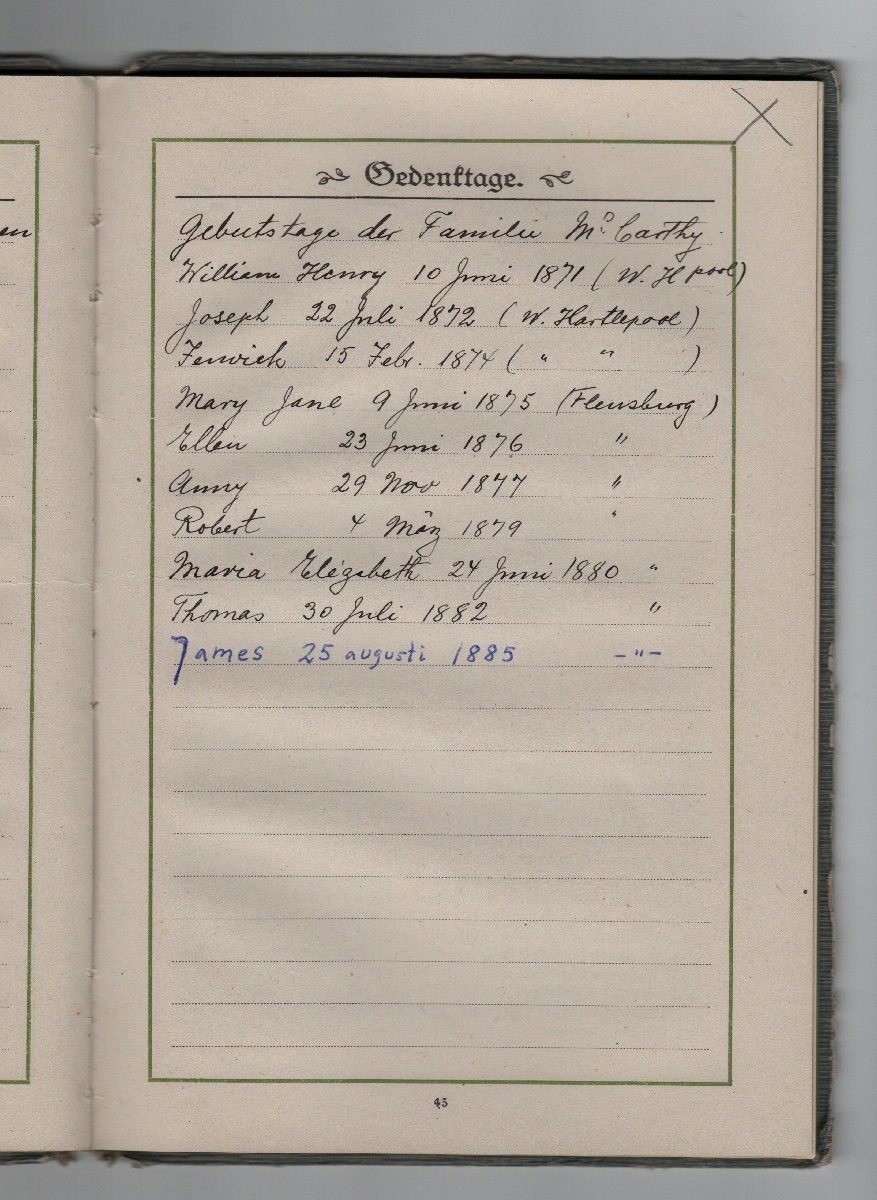 en
Gedenktage.
Geburtstage der Familie Mc. Carthy
William Henry 10 Juni 1871 (W. H pool)
Joseph 22 Juli 1872 (W. Hartlepool)
Fenwick 15 Febr. 1874 ( " " )
Mary Jane 9 Juni 1875 (Flensburg)
Ellen 23 Juni 1876 "
Anny 29 Nov 1877 "
Robert 4 März 1879 "
Maria Elizabeth 24 Juni 1880 "
Thomas 30 Juli 1882 "
James 25 augusti 1885 -"-
45